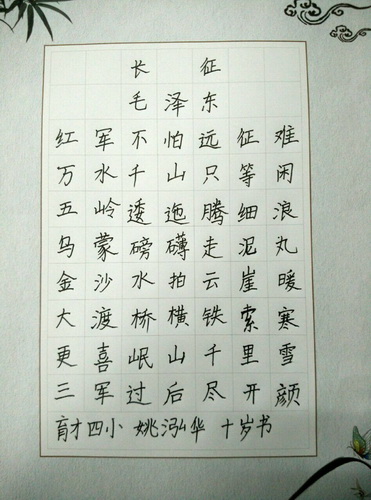 长 征
毛泽东
红军不怕远征难
万水千山只等闲
五岭逶迤腾细浪
乌蒙磅礴走泥丸
金沙水拍云崖暖
大渡桥横铁索寒
更喜岷山千里雪
三军过后尽开颜
育才四小 姚泓华 十岁书